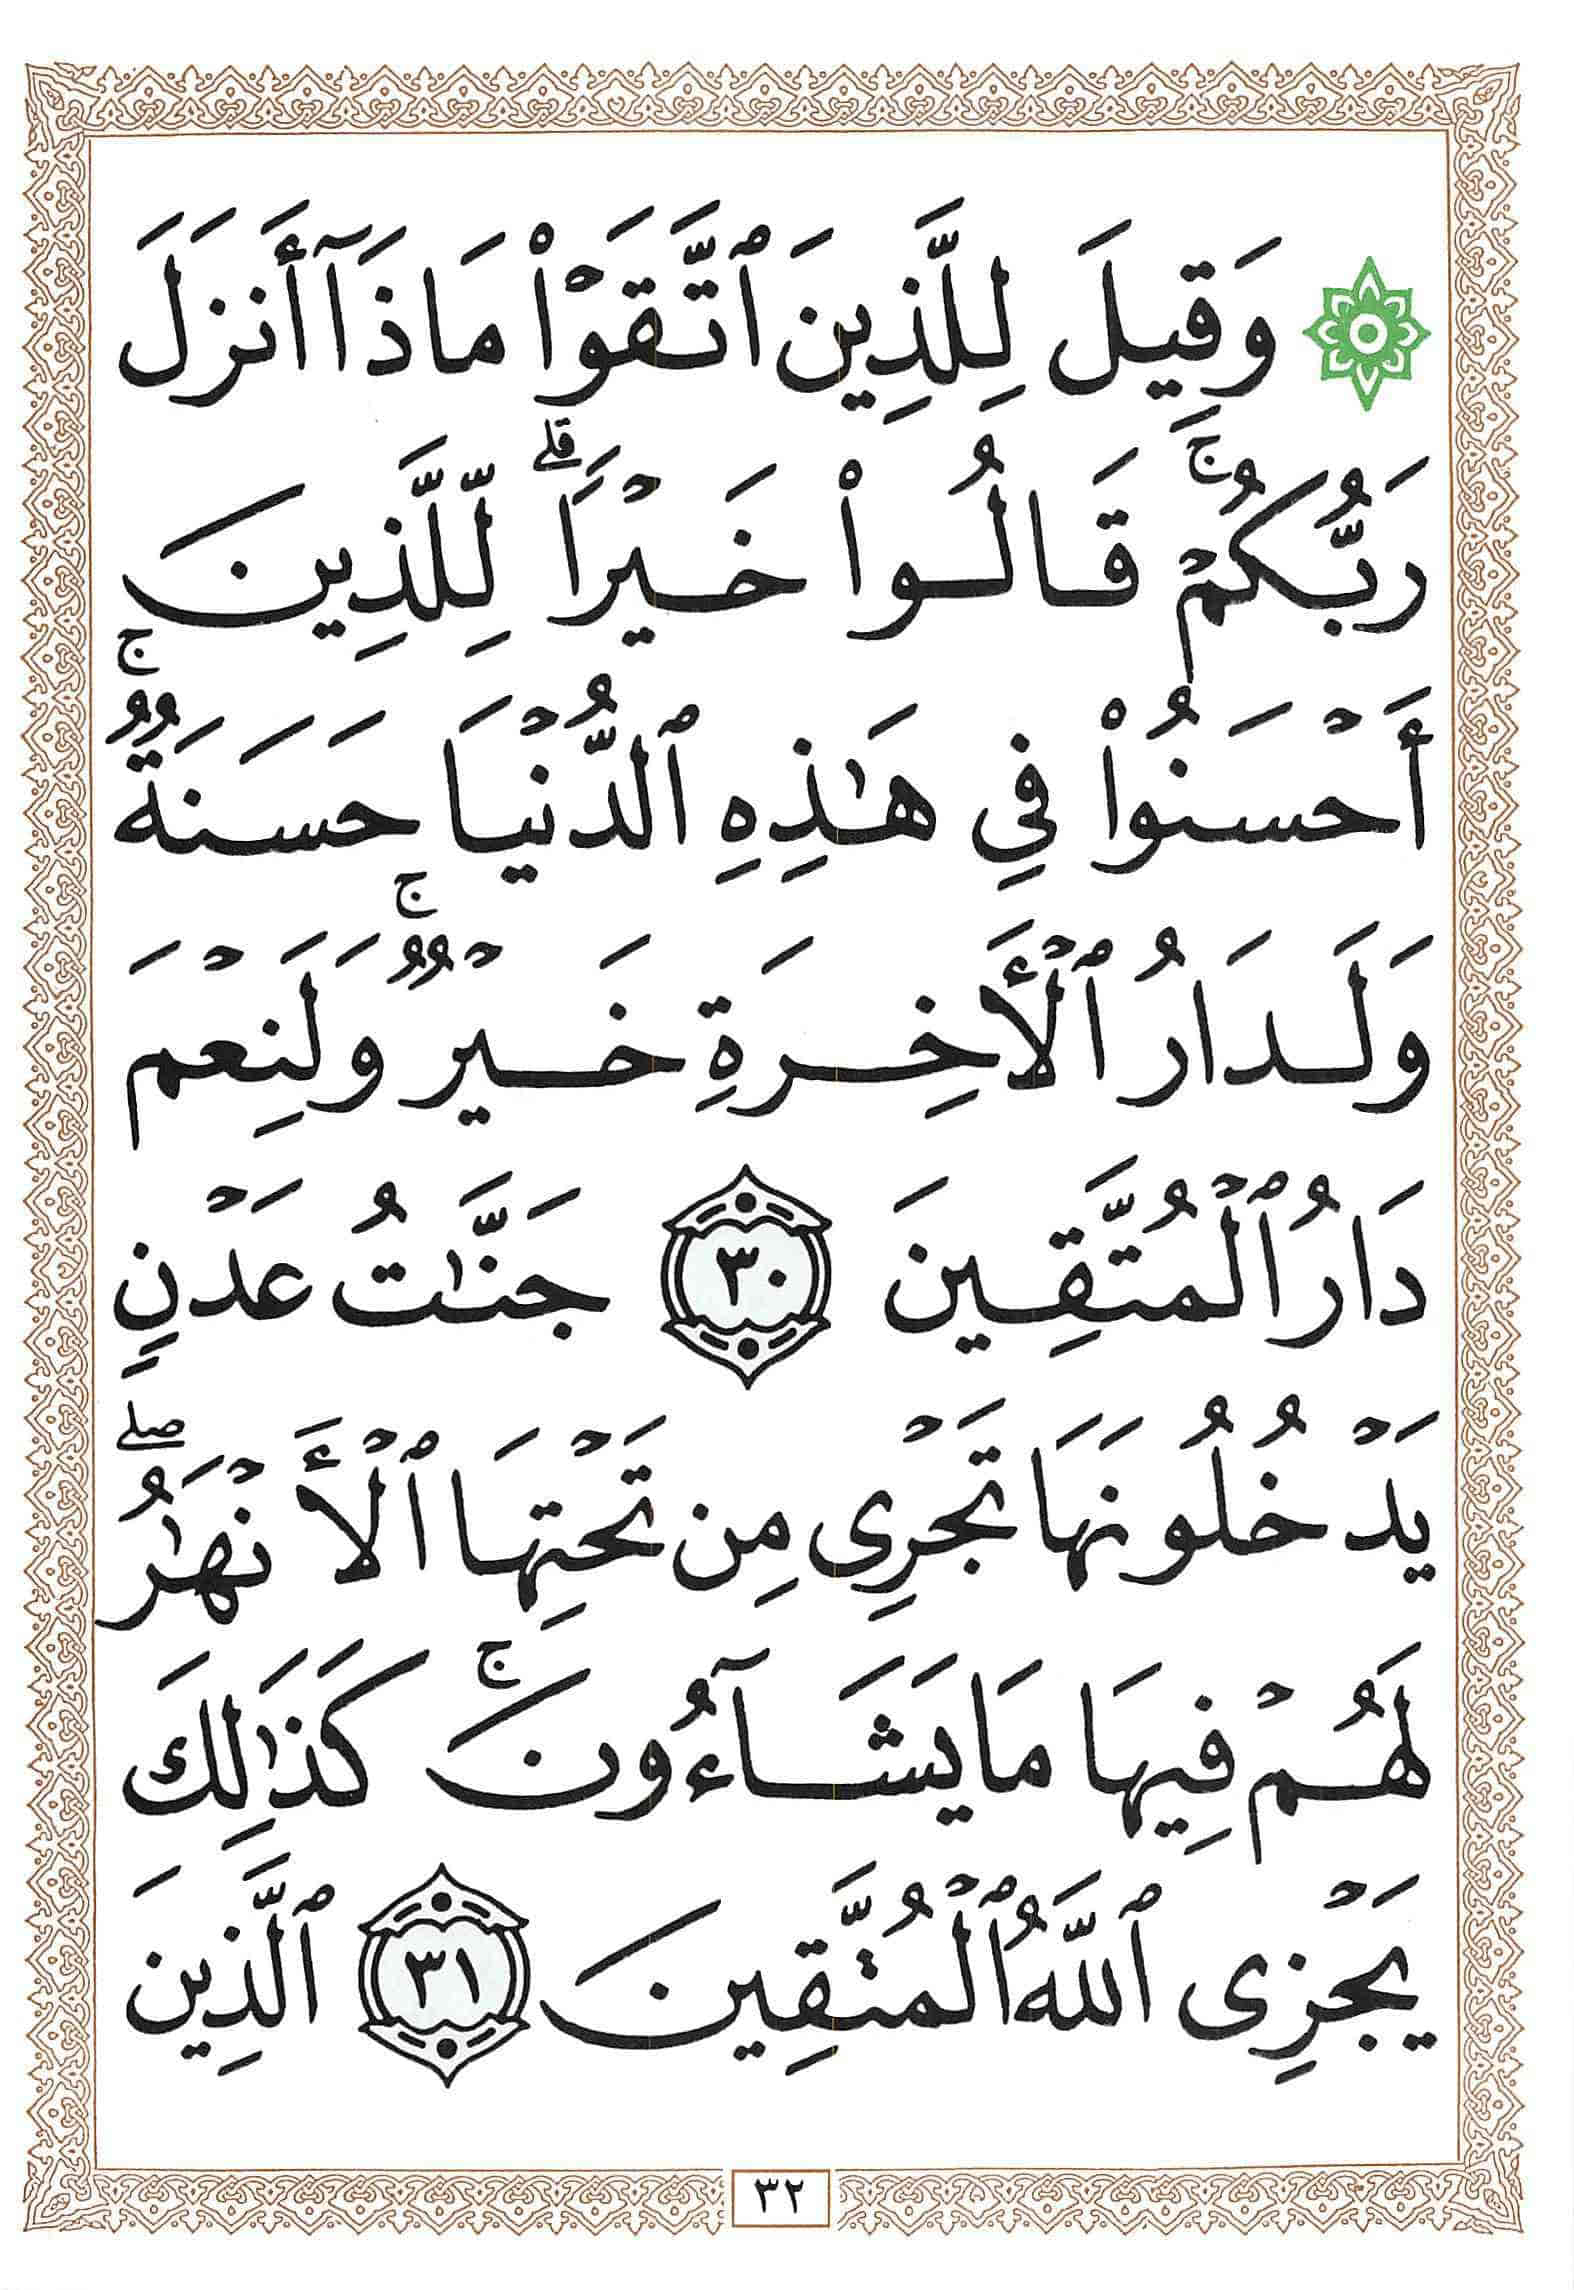 ۞ وَقِيلَ لِلَّذِينَ ٱتَّقَوْا۟ مَاذَآ أَنزَلَ
رَبُّكُمْ ۚ قَالُوا۟ خَيْرًا ۗ لِّلَّذِينَ
أَحْسَنُوا۟ فِي هَـٰذِهِ ٱلدُّنْيَا حَسَنَةٌ ۚ
وَلَدَارُ ٱلْأَخِرَةِ خَيْرٌ ۚ وَلَنِعْمَ
دَارُ ٱلْمُتَّقِينَ ٣٠ جَنَّـٰتُ عَدْنٍ
يَدْخُلُونَهَا تَجْرِى مِن تَحْتِهَا ٱلْأَنْهَـٰرُ ۖ
لَهُمْ فِيهَا مَا يَشَآءُونَ ۚ كَذَٰلِكَ
يَجْزِى ٱللَّهُ ٱلْمُتَّقِينَ ٣١ ٱلَّذِينَ
٣٢